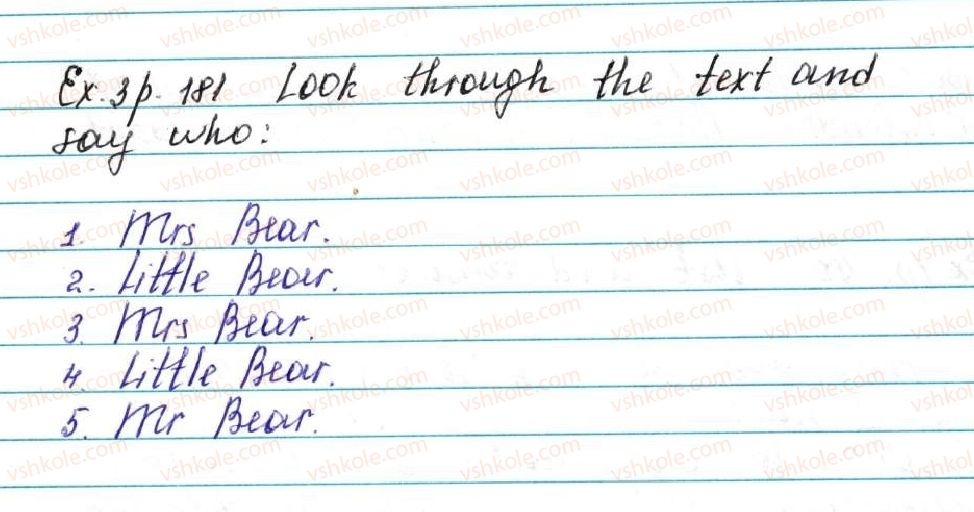 Ex. 3 p. 181 Look through the text and
say who:
1. Mrs Bear.
2. Little Bear.
3. Mrs Bear.
4. Little Bear.
5. Mr Bear.